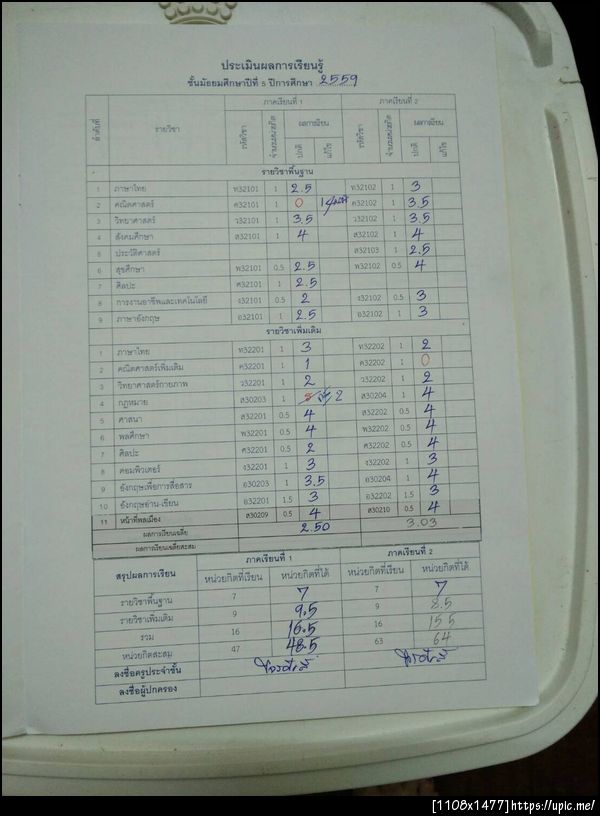 ประเมินผลการเรียนรู้
ชั้นมัธยมศึกษาปีที่ 5 ปีการศึกษา 2559
ลำดับที่ รายวิชา ภาคเรียนที่ 1 ภาคเรียนที่ 2
รหัสวิชา จำนวนหน่วยกิต ผลการเรียน รหัสวิชา จำนวนหน่วยกิต ผลการเรียน
ปกติ แก้ไข ปกติ แก้ไข
รายวิชาพื้นฐาน
1 ภาษาไทย ท32101 1 2.5 ท32102 1 3
2 คณิตศาสตร์ ค32101 1 0 ค32102 1 3.5
3 วิทยาศาสตร์ ว32101 1 3.5 ว32102 1 3.5
4 สังคมศึกษา ส32101 1 4 ส32102 1 4
5 ประวัติศาสตร์ ส32103 1 2.5
6 สุขศึกษา พ32101 0.5 2.5 พ32102 0.5 4
7 ศิลปะ ศ32101 1 2.5
8 การงานอาชีพและเทคโนโลยี ง32101 0.5 2 ง32102 0.5 3
9 ภาษาอังกฤษ อ32101 1 2.5 อ32102 1 3
รายวิชาเพิ่มเติม
1 ภาษาไทย ท32201 1 3 ท32202 1 2
2 คณิตศาสตร์เพิ่มเติม ค32201 1 1 ค32202 1 0
3 วิทยาศาสตร์กายภาพ ว32201 1 2 ว32202 1 2
4 กฎหมาย ส30203 1 2 ส30204 1 4
5 ศาสนา ส32201 0.5 4 ส32202 0.5 4
6 พลศึกษา พ32201 0.5 4 พ32202 0.5 4
7 ศิลปะ ศ32201 0.5 2 ศ32202 0.5 4
8 คอมพิวเตอร์ ง32201 1 3 ง32202 1 3
9 อังกฤษเพื่อการสื่อสาร อ30203 1 3.5 อ30204 1 4
10 อังกฤษอ่าน-เขียน อ32201 1.5 3 อ32202 1.5 3
11 หน้าที่พลเมือง ส30209 0.5 4 ส30210 0.5 4
ผลการเรียนเฉลี่ย 2.50 3.03
ผลการเรียนเฉลี่ยสะสม
สรุปผลการเรียน ภาคเรียนที่ 1 ภาคเรียนที่ 2
หน่วยกิตที่เรียน หน่วยกิตที่ได้ หน่วยกิตที่เรียน หน่วยกิตที่ได้
รายวิชาพื้นฐาน 7 7 7 7
รายวิชาเพิ่มเติม 9 9.5 9 8.5
รวม 16 16.5 16 15.5
หน่วยกิตสะสม 47 48.5 63 64
ลงชื่อครูประจำชั้น
ลงชื่อผู้ปกครอง
[1108x1477]https://upic.me/